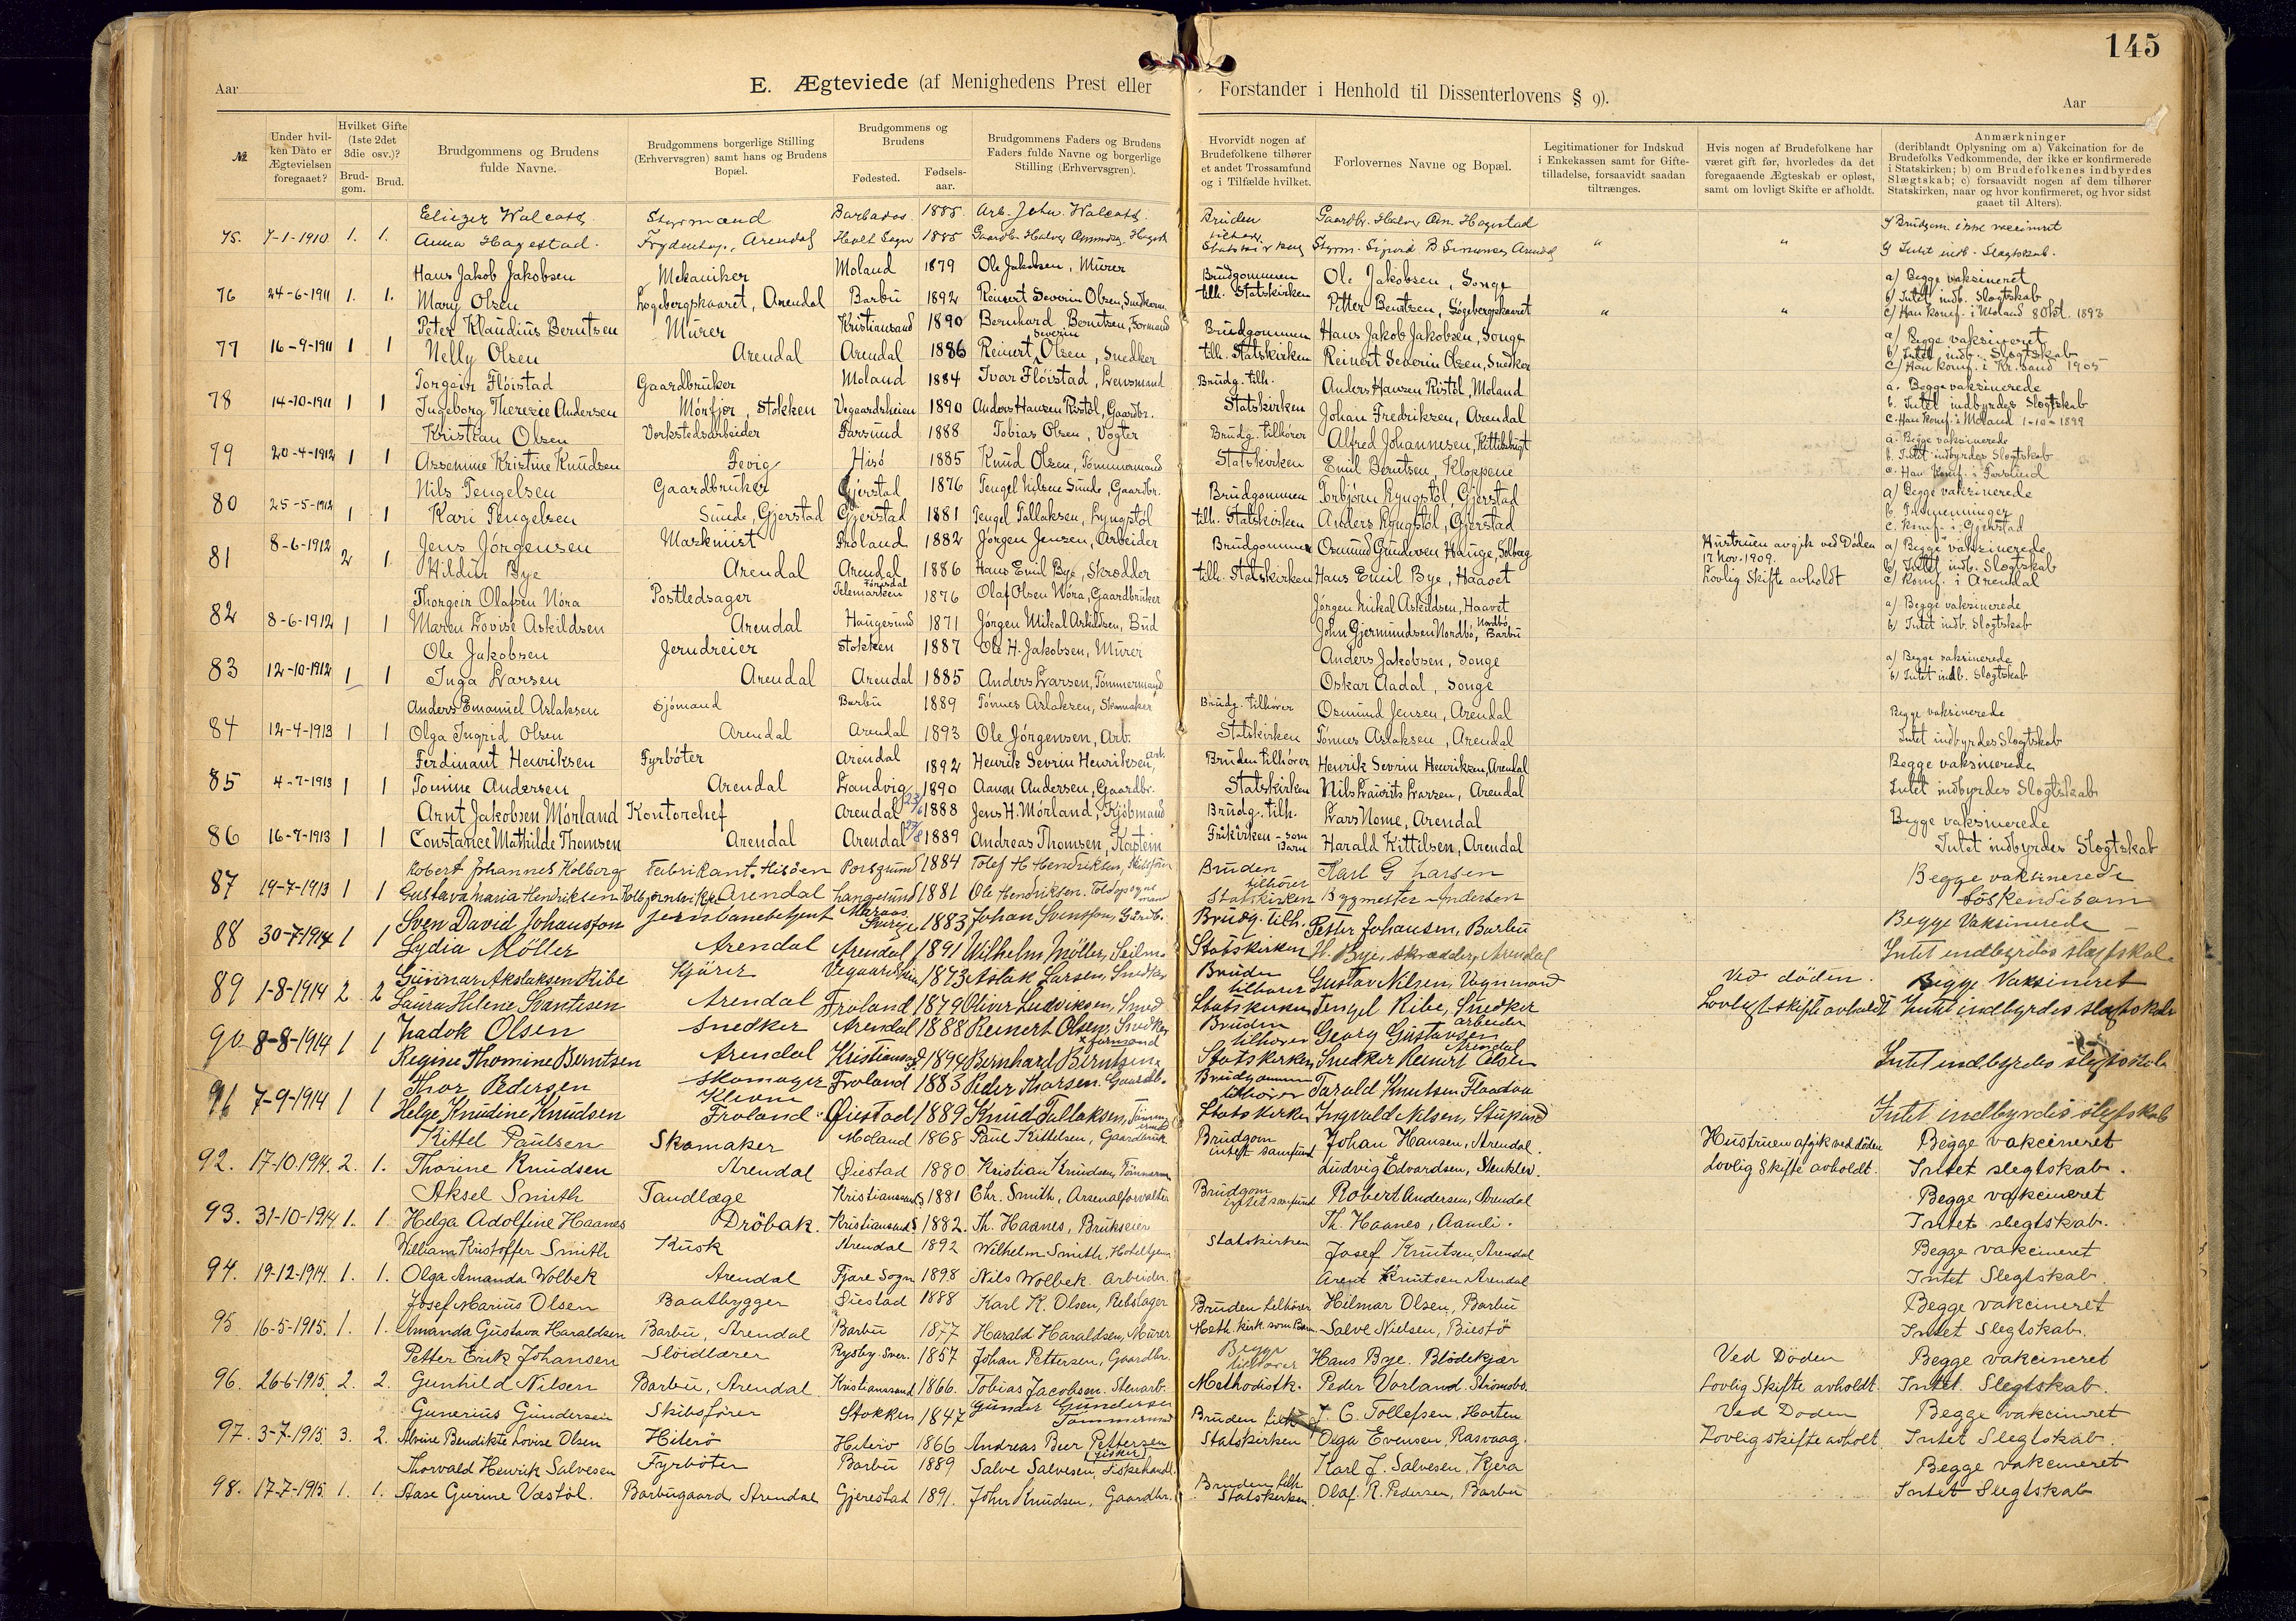 145
E. Ægteviede (af Menighedens Prest eller Forstander i Henhold til Dissenterlovens § 9).
Aar
Aar
№
Under hvilken Dato er Ægtevielsen foregaaet?
Hvilket Gifte (1ste 2det 3die osv.)?
Brudgom.
Brud.
Brudgommens og Brudens fulde Navne.
Brudgommens borgerlige Stilling (Erhvervsgren) samt hans og Brudens Bopæl.
Brudgommens og Brudens
Fødested.
Fødselsaar.
Brudgommens Faders og Brudens Faders fulde Navne og borgerlige Stilling (Erhvervsgren).
Hvorvidt nogen af Brudefolkene tilhører et andet Trossamfund og i Tilfælde hvilket.
Forlovernes Navne og Bopæl.
Legitimationer for Indskud i Enkekassen samt for Giftetilladelse, forsaavidt saadan tiltrænges.
Hvis nogen af Brudefolkene har været gift før, hvorledes da det foregaaende Ægteskab er opløst, samt om lovligt Skifte er afholdt.
Anmærkninger (deriblandt Oplysning om a) Vakcination for de Brudefolks Vedkommende, der ikke er konfirmerede i Statskirken; b) om Brudefolkenes indbyrdes Slægtskab; c) forsaavidt nogen af dem tilhører Statskirken, naar og hvor konfirmeret, og hvor sidst gaaet til Alters).
Eliezer Walcott Styrmand Barbados 1885 Arb. John Walcott Bruden Gaardb. Halvor Om. Hagestad Brudgom. ikke vaccineret
75. 7-1-1910 1. 1. Anna Hagestad. Arendal Holt Sogn 1885 tilhører Statskirken Styrm. Sigurd B. Simonsen Arendal " " Intet indb. Slægtskab.
Hans Jakob Jakobsen Mekaniker Moland 1879 Ole Jakobsen, Murer Brudgommen Ole Jakobsen, Songe a) Begge vaksineret
76 24-6-1911 1. 1. Mary Olsen Løgebergskaaret, Arendal Barbu 1892 Reinert Severin Olsen, Snedkerm. tilh. Statskirken Petter Berntsen, Søgebergskaaret " " b) Intet indb. Slægtskab c) Han konf. i Moland 8 Okt. 1893
Peter Klaudius Berntsen Murer Kristiansand 1890 Bernhard Berntsen, Formand Brudgommen Hans Jakob Jakobsen, Songe a) Begge vaksineret
77 16-9-1911 1 1 Nelly Olsen Arendal Arendal 1886 Reinert Severin Olsen, Snedker tilh. Statskirken Reinert Severin Olsen, Snedker b) Intet indb. Slægtskab c) Han konf. i Kr.sand 1905
Torgeir Fløistad Gaardbruker Moland 1884 Ivar Fløistad, Lensmand Brudg. tilh. Anders Hansen Ristøl, Moland a. Begge vaksinerede
78 14-10-1911 1 1 Ingeborg Theresie Andersen Mörfjær, Stokken Vegaardsheien 1890 Anders Hansen Ristøl, Gaardbr. Statskirken Johan Fredriksen, Arendal b. Intet indbyrdes Slægtskab c. Han konf. i Moland 1-10-1899
Kristian Olsen Verkstedsarbeider Farsund 1888 Tobias Olsen, Vogter Brudg. tilhører Alfred Johannesen, Kittelsbugt a. Begge vaksinerede
79 20-4-1912 1 1 Assenine Kristine Knudsen Fevig Hisö 1885 Knud Olsen, Tömmermand Statskirken Emil Berntsen, Kloppene b. Intet indbyrdes Slægtskab c. Han konf. i Farsund
Nils Tengelsen Gaardbruker Gjerstad 1876 Tengel Nilsene Sunde, Gaardbr. Brudgommen Torbjörn Lyngstöl, Gjerstad a) Begge vaksinerede
80 25-5-1912 1 1 Kari Tengelsen Sunde, Gjerstad Gjerstad 1881 Tengel Tallaksen, Lyngstöl tilh. Statskirken Anders Lyngstöl, Gjerstad b. Tremenninger c. Konf. i Gjerstad
Jens Jörgensen Maskinist Froland 1882 Jörgen Jensen, Arbeider Brudgommen Osmund Gundersen Hauge, Solberg Hustruen avgik ved Döden 17 Nov. 1909. a) Begge vaksinerede
81 8-6-1912 2 1 Hildur Bye Arendal Arendal 1886 Hans Emil Bye, Skrædder tilh. Statskirken Hans Emil Bye, Haavet Lovlig Skifte avholdt b) Intet indb. Slægtskab c) Konf. i Arendal
Thorgeir Olafsen Nöra Postledsager Telemarken 1876 Olaf Olsen Nöra, Gaardbruker Jörgen Mikal Askildsen, Haavet a) Begge vaksinerede
82 8-6-1912 1 1 Maren Lovise Askildsen Arendal Haugesund 1871 Jörgen Mikal Askildsen, Bud John Gjermundsen Nordbö, Nordbö, Barbu b) Intet indb. Slægtskab
Ole Jakobsen Jerndreier Stokken 1887 Ole H. Jakobsen, Murer Anders Jakobsen, Songe a) Begge vaksinerede
83 12-10-1912 1 1 Inga Larsen Arendal Arendal 1885 Anders Larsen, Tömmermand Oskar Aadal, Songe b) Intet indb. Slægtskab
Anders Emanuel Aslaksen Sjömand Barbu 1889 Tönnes Aslaksen, Skomaker Brudg. tilhører Osmund Jensen, Arendal Begge vaksinerede
84 12-4-1913 1 1 Olga Ingrid Olsen Arendal Arendal 1893 Ole Jörgensen, Arb. Statskirken Tönnes Aslaksen, Arendal Intet indbyrdes Slægtskab
Ferdinant Henriksen Fyrböter Arendal 1892 Henrik Sevrin Henriksen, Arb. Bruden tilhører Henrik Sevrin Henriksen, Arendal Begge vaksinerede
85 4-7-1913 1 1 Tomine Andersen Arendal Landvig 1890 Aanon Andersen, Gaardbr. Statskirken Nils Laurits Larsen, Arendal Intet indbyrdes Slægtskab
Arnt Jakobsen Mörland Kontorchef Arendal 23/6 1888 Jens H. Mörland, Kjöbmand Brudg. tilh. Lars Nome, Arendal Begge vaksinerede
86 16-7-1913 1 1 Constance Mathilde Thomsen Arendal Arendal 27/8 1889 Andreas Thomsen, Kaptein Frikirken - som Barn Harald Kittilsen, Arendal Intet indbyrdes Slægtskab
Robert Johannes Kolborg Fabrikant. Hisöen Porsgrund 1884 Bruden Karl G Larsen Begge vaksinerede
87 19-7-1913 1 1 Gustava Maria Hendriksen Kolbjørnsvik pr Arendal Langesund 1881 Ole Hendriksen. tilhører Statskirken Bygmester Andersen Söskendebarn
Sven David Johansson Jernbanebetjent 1883 Johan Svensson, Brudg. tilh. Petter Johansen, Barbu Begge Vaksinerede
88 30-7-1914 1 1 Lydia Möller Arendal Arendal 1891 Wilhelm Möller, Statskirken H. Bye, skrædder, Arendal Intet indbyrdes slægtskab
Gunnar Akslaksen Ribe Kjörer 1873 Aslak Larsen, Snedker Bruden Gustav Nilsen, Vognmand Ved döden. Begge Vaksineret
89 1-8-1914 2 2 Laura Helene Svantisen Arendal Froland 1879 Oliver Ludviksen, Smed tilhører Statskirken Tengel Ribe, Snedker Lovligt skifte avholdt Intet indbyrdes slægtskab
Zadok Olsen Snedker Arendal 1888 Reinert Olsen, Snedker Bruden Georg Gustavsen arbeider Arendal
90 8-8-1914 1 1 Regine Thomine Berntsen Arendal Kristiansand 1894 Bernhard Berntsen formand tilhører Statskirken Snedker Reinert Olsen Intet indbyrdes slægtskab
Thor Pedersen Skomager Froland 1883 Peder Thorsen. Gaardb. Brudgommen Tarald Knutsen Flaadøa
91 7-9-1914 1 1 Helge Knudine Knudsen Klevene Froland Øiestad 1889 Knud Tallaksen, tilhører Statskirken Ingvald Nilsen, Intet indbyrdes slægtskab
Kittel Paulsen Skomaker Moland 1868 Paul Kittelsen, Gaardbruk. Brudgom Johan Hansen, Arendal. Hustruen afgik ved döden Begge vakcineret
92. 17-10-1914. 2. 1. Thorine Knudsen Arendal Øiestad 1880 Kristian Knudsen, Tömmerm. intet samfund Ludvig Edvardsen, Stenklev. Lovlig skifte avholdt. Intet slegtskab.
Aksel Smith Tandlæge Kristianssand S 1881 Chr. Smith, Arsenalforvalter Brudgom Robert Andersen, Arendal Begge vakcineret
93. 31-10-1914. 1. 1 Helga Adolfine Haanes Dröbak. Kristianssand S 1882. Th. Haanes, Brukseier intet samfund Th. Haanes, Aamli. Intet slegtskab.
William Kristoffer Smith Kusk Arendal 1892 Wilhelm Smith, Hoteltjen. Statskirken Josef Knutsen, Arendal Begge vakcineret
94. 19-12-1914. 1. 1. Olga Amanda Wolbek Arendal Fjære Sogn 1898 Nils Wolbek Arbeider. Arent Knutsen Arendal Intet Slegtskab.
Josef Marius Olsen Baatbygger Øiestad 1888 Karl K. Olsen, Rebslager Bruden tilhører Hilmar Olsen, Barbu Begge vakcineret
95. 16-5-1915. 1. 1. Amanda Gustava Haraldsen Barbu, Arendal Barbu 1877 Harald Haraldsen, Murer Meth. kirk. som Barn Salve Nielsen, Biestö Intet Slegtskab.
Petter Erik Johansen Slöidlærer Rysby Sver. 1857 Johan Pettersen, Gaardbr. Begge tilhører Hans Bye. Blödekjær Ved Döden Begge vakcineret
96. 26-6-1915. 2. 2. Gunhild Nilsen Barbu, Arendal Kristianssand 1866. Tobias Jacobsen. Stenarb. Methodistk. Peder Vorland. Strömsbo. Lovlig Skifte avholdt. Intet. Slegtskab.
Gunerius Gundersen Skibsfører Stokken 1847 Gunder Gundersen Tömmermand Bruden tilh. J. C. Tollefsen, Horten Ved Döden Begge vakcineret
97. 3-7-1915. 3. 2. Alvine Bendikte Lovise Olsen Hiterö Hiterö 1866 Andreas Beer Pettersen (fisker) Statskirken Olga Evensen, Rasvaag. Lovlig skifte avholt. Intet Slegtskab.
Thorvald Henrik Salvesen Fyrböter Barbu 1889 Salve Salvesen, Fiskehandl. Bruden tilh. Karl J. Salvesen, Kjera Begge vakcineret
98. 17-7-1915 1. 1. Aase Gurine Væstöl. Barbugaard Arendal Gjerestad 1891. John Knudsen, Gaardbr. Statskirken Olaf R. Pedersen, Barbu Intet Slegtskab